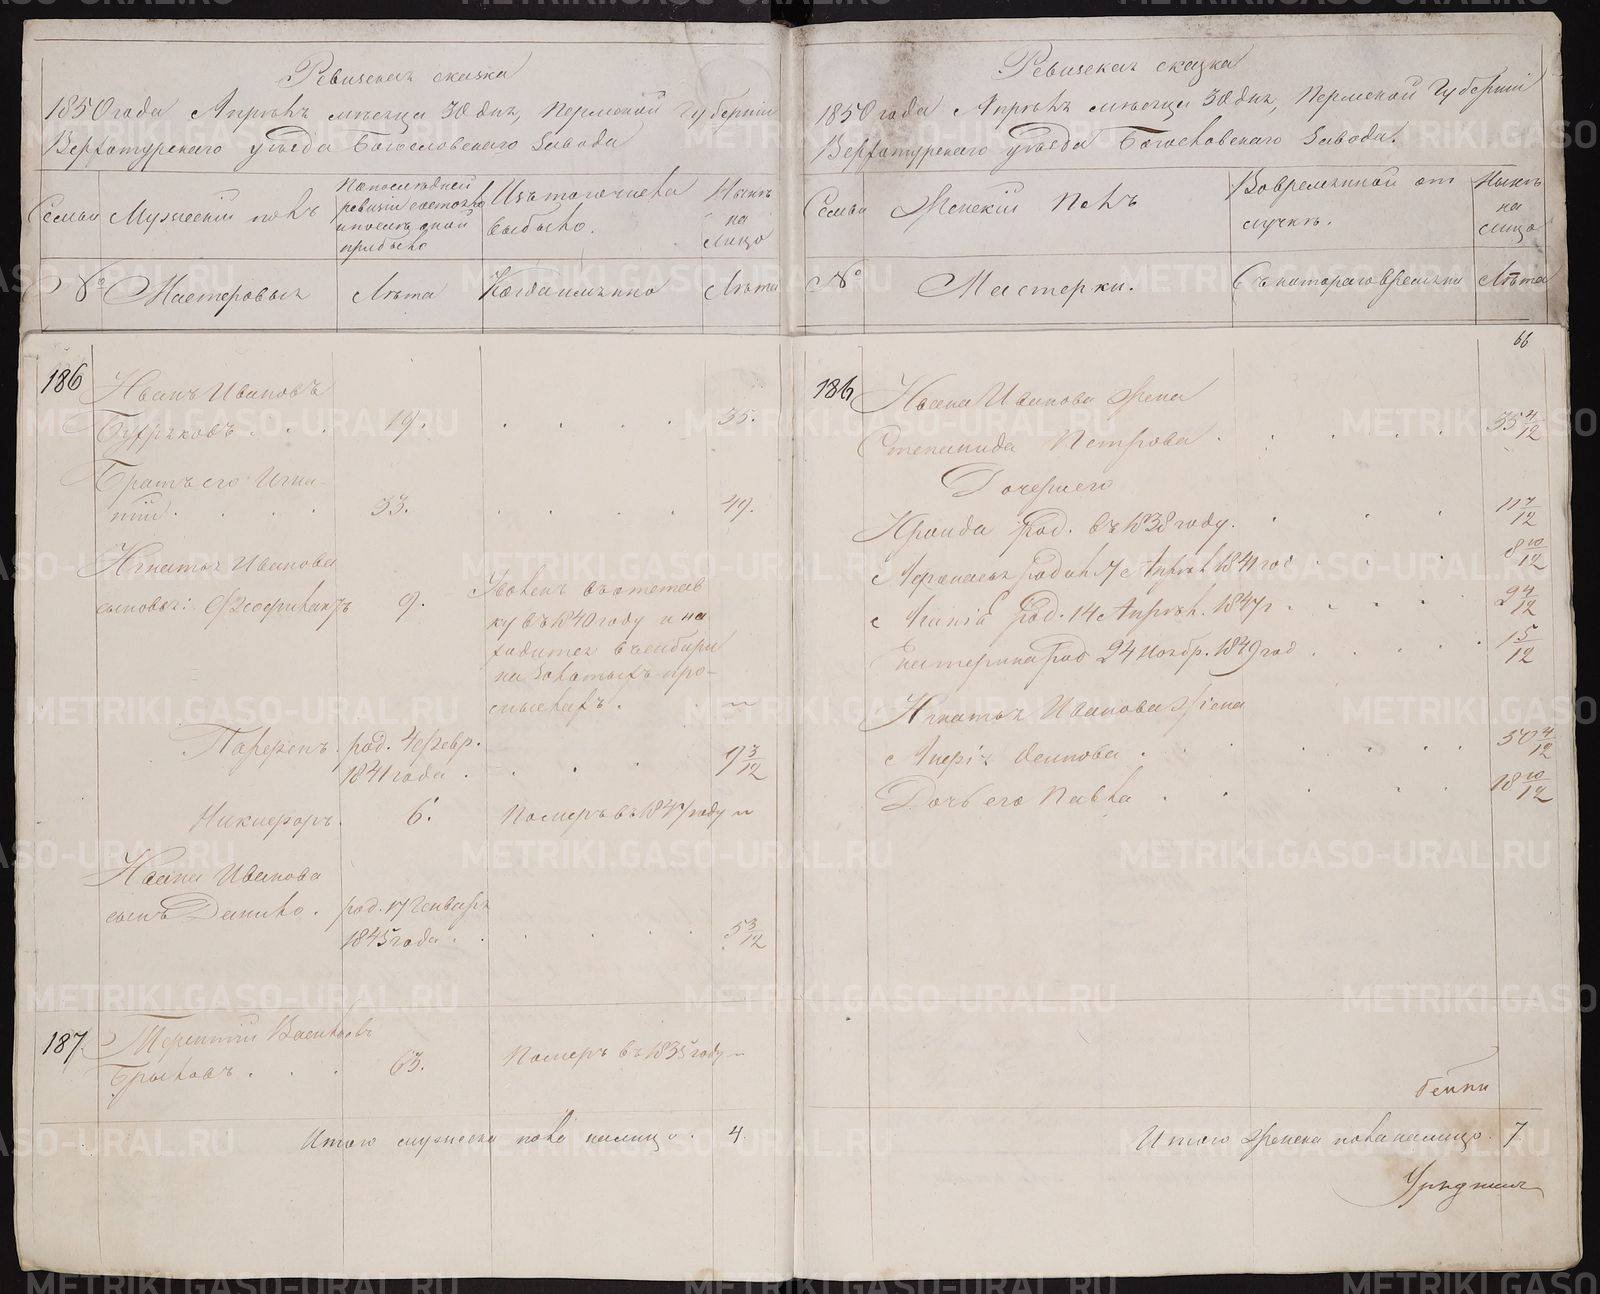 Ревизская сказка
1850 года Апрѣля мѣсяца 30 дня, Пермской Губерніи
Верхотурскаго уѣзда Богословскаго Завода
Семьи
Мужескій полъ
По последней
ревизіи состояло
и после оной
прибыло
Изъ того числа
выбыло.
Нынѣ
на
Лицо
№
Мастеровыя
Лѣта
Когда именно
Лѣта
186
Иванъ Ивановъ
19.
35.
Братъ его Игна-
тій
33.
49.
Игнатья Иванова
сыновья:
9.
Уволенъ въ отстав
ку въ 1840 году и на
ходится въ сибири
на Золотыхъ про-
мыслахъ.
Парфенъ. род. 4 февр.
1841 года.
9 3/12
Никифоръ.
6.
Померъ въ 1847 году
Ивана Иванова
сынъ Данило.
род. 17 Генваря
1845 года.
5 3/12
187
Терентій Васильевъ
63.
Померъ въ 1835 году
Итого мужеска пола налицо. 4.
Ревизская сказка
1850 года Апрѣля мѣсяца 30 дня, Пермской Губерніи
Верхотурскаго уѣзда Богословскаго Завода.
Семьи
Женскій Полъ
Во временной от
лучкѣ.
Нынѣ
на
лицо
№
Мастерки.
Съ котораго времени
Лѣта
66
186
Ивана Иванова жена
Степанида Петрова
35 4/12
Дочери его
род. въ 1838 году.
11 7/12
род. 1841 го
8 10/12
род. 14 Апрѣл. 1847 г
2 4/12
Екатерина род 24 Ноябр. 1849 год
1 5/12
Игнатья Иванова жена
Осипова
50 4/12
Дочь его Павла
18 10/12
Итого женска пола налицо. 7.
METRIKI.GASO-URAL.RU